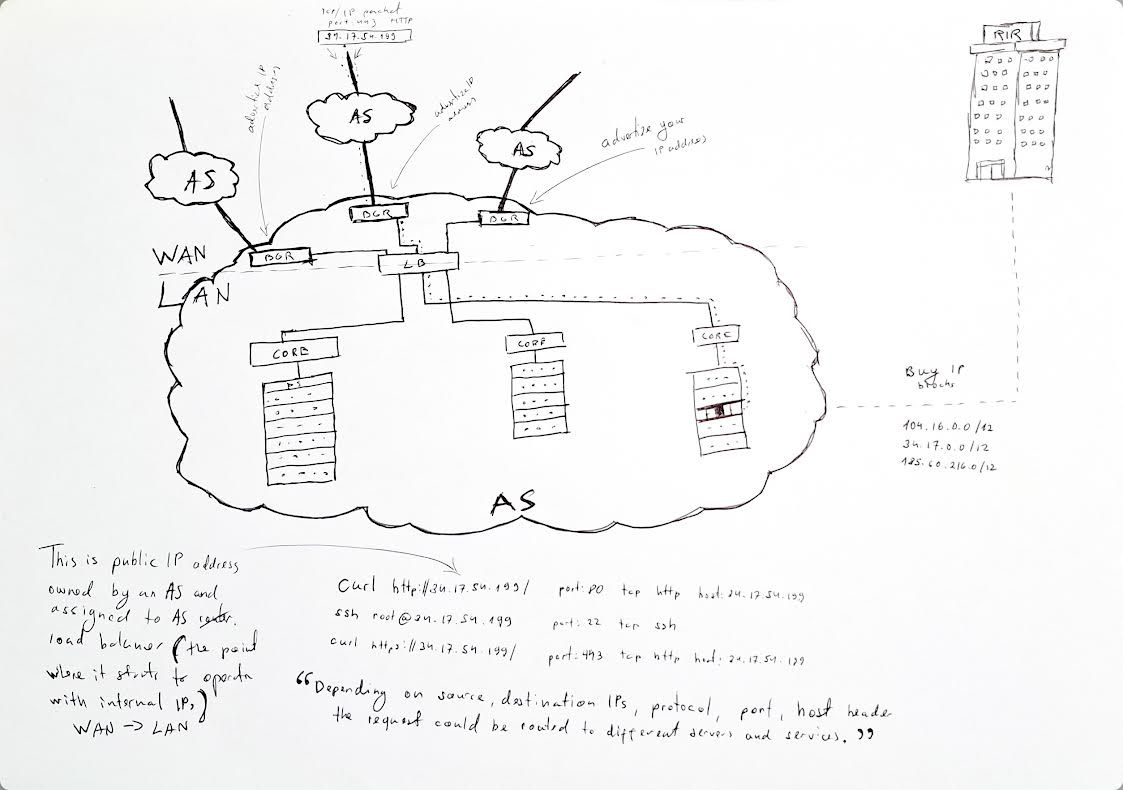 tcp/IP packet
port: 443 HTTP
34.17.54.199
RIR
advertise IP
addresses
advertise IP
address
advertise your
IP address
AS
AS
AS
BGR
BGR
BGR
WAN
LB
LAN
CORE
CORE
CORE
Buy IP
blocks
104.16.0.0/12
34.17.0.0/12
185.60.216.0/12
AS
This is public IP address
owned by an AS and
assigned to AS
load balancer (the point
where it starts to operate
with internal IPs)
WAN → LAN
curl http://34.17.54.199/ port: 80 tcp http host: 34.17.54.199
ssh root@34.17.54.199 port: 22 tcp ssh
curl https://34.17.54.199/ port: 443 tcp http host: 34.17.54.199
“Depending on source, destination IPs, protocol, port, host header
the request could be routed to different servers and services.”